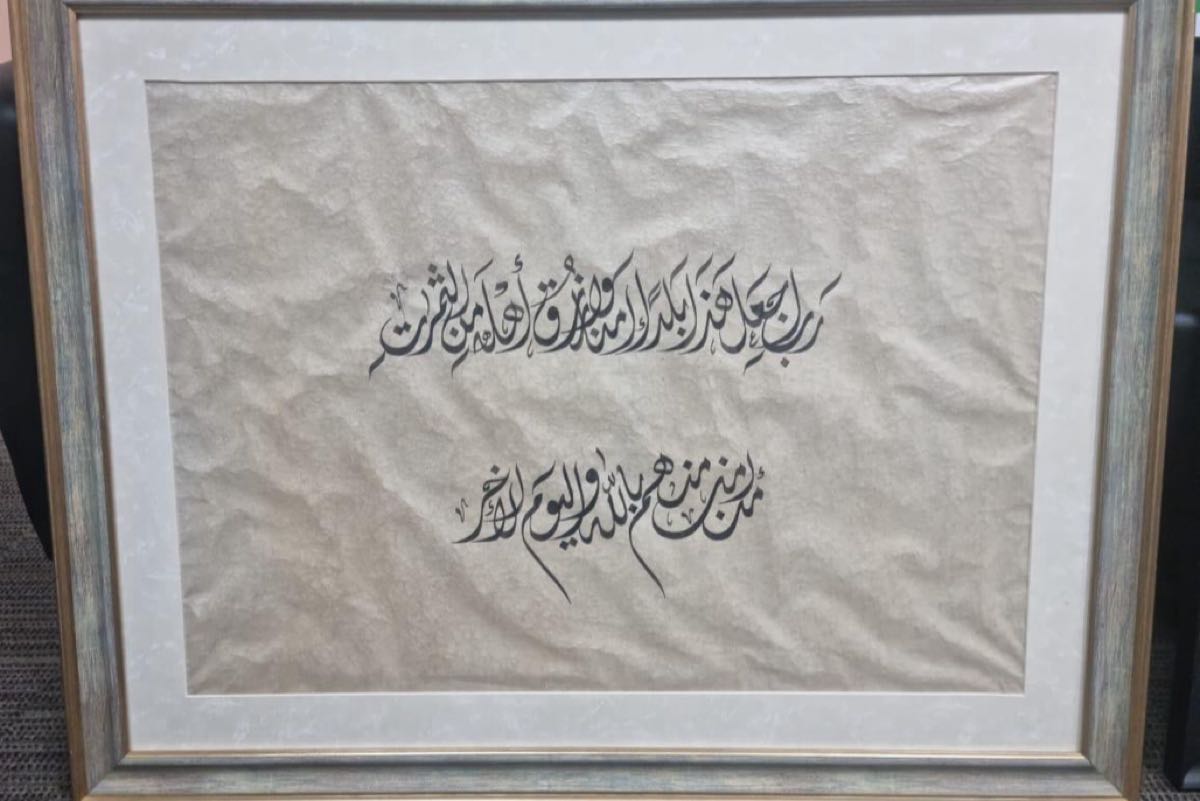 رب اجعل هذا بلدا امنا وارزق أهله من الثمرت
من امن منهم بالله واليوم لاخر